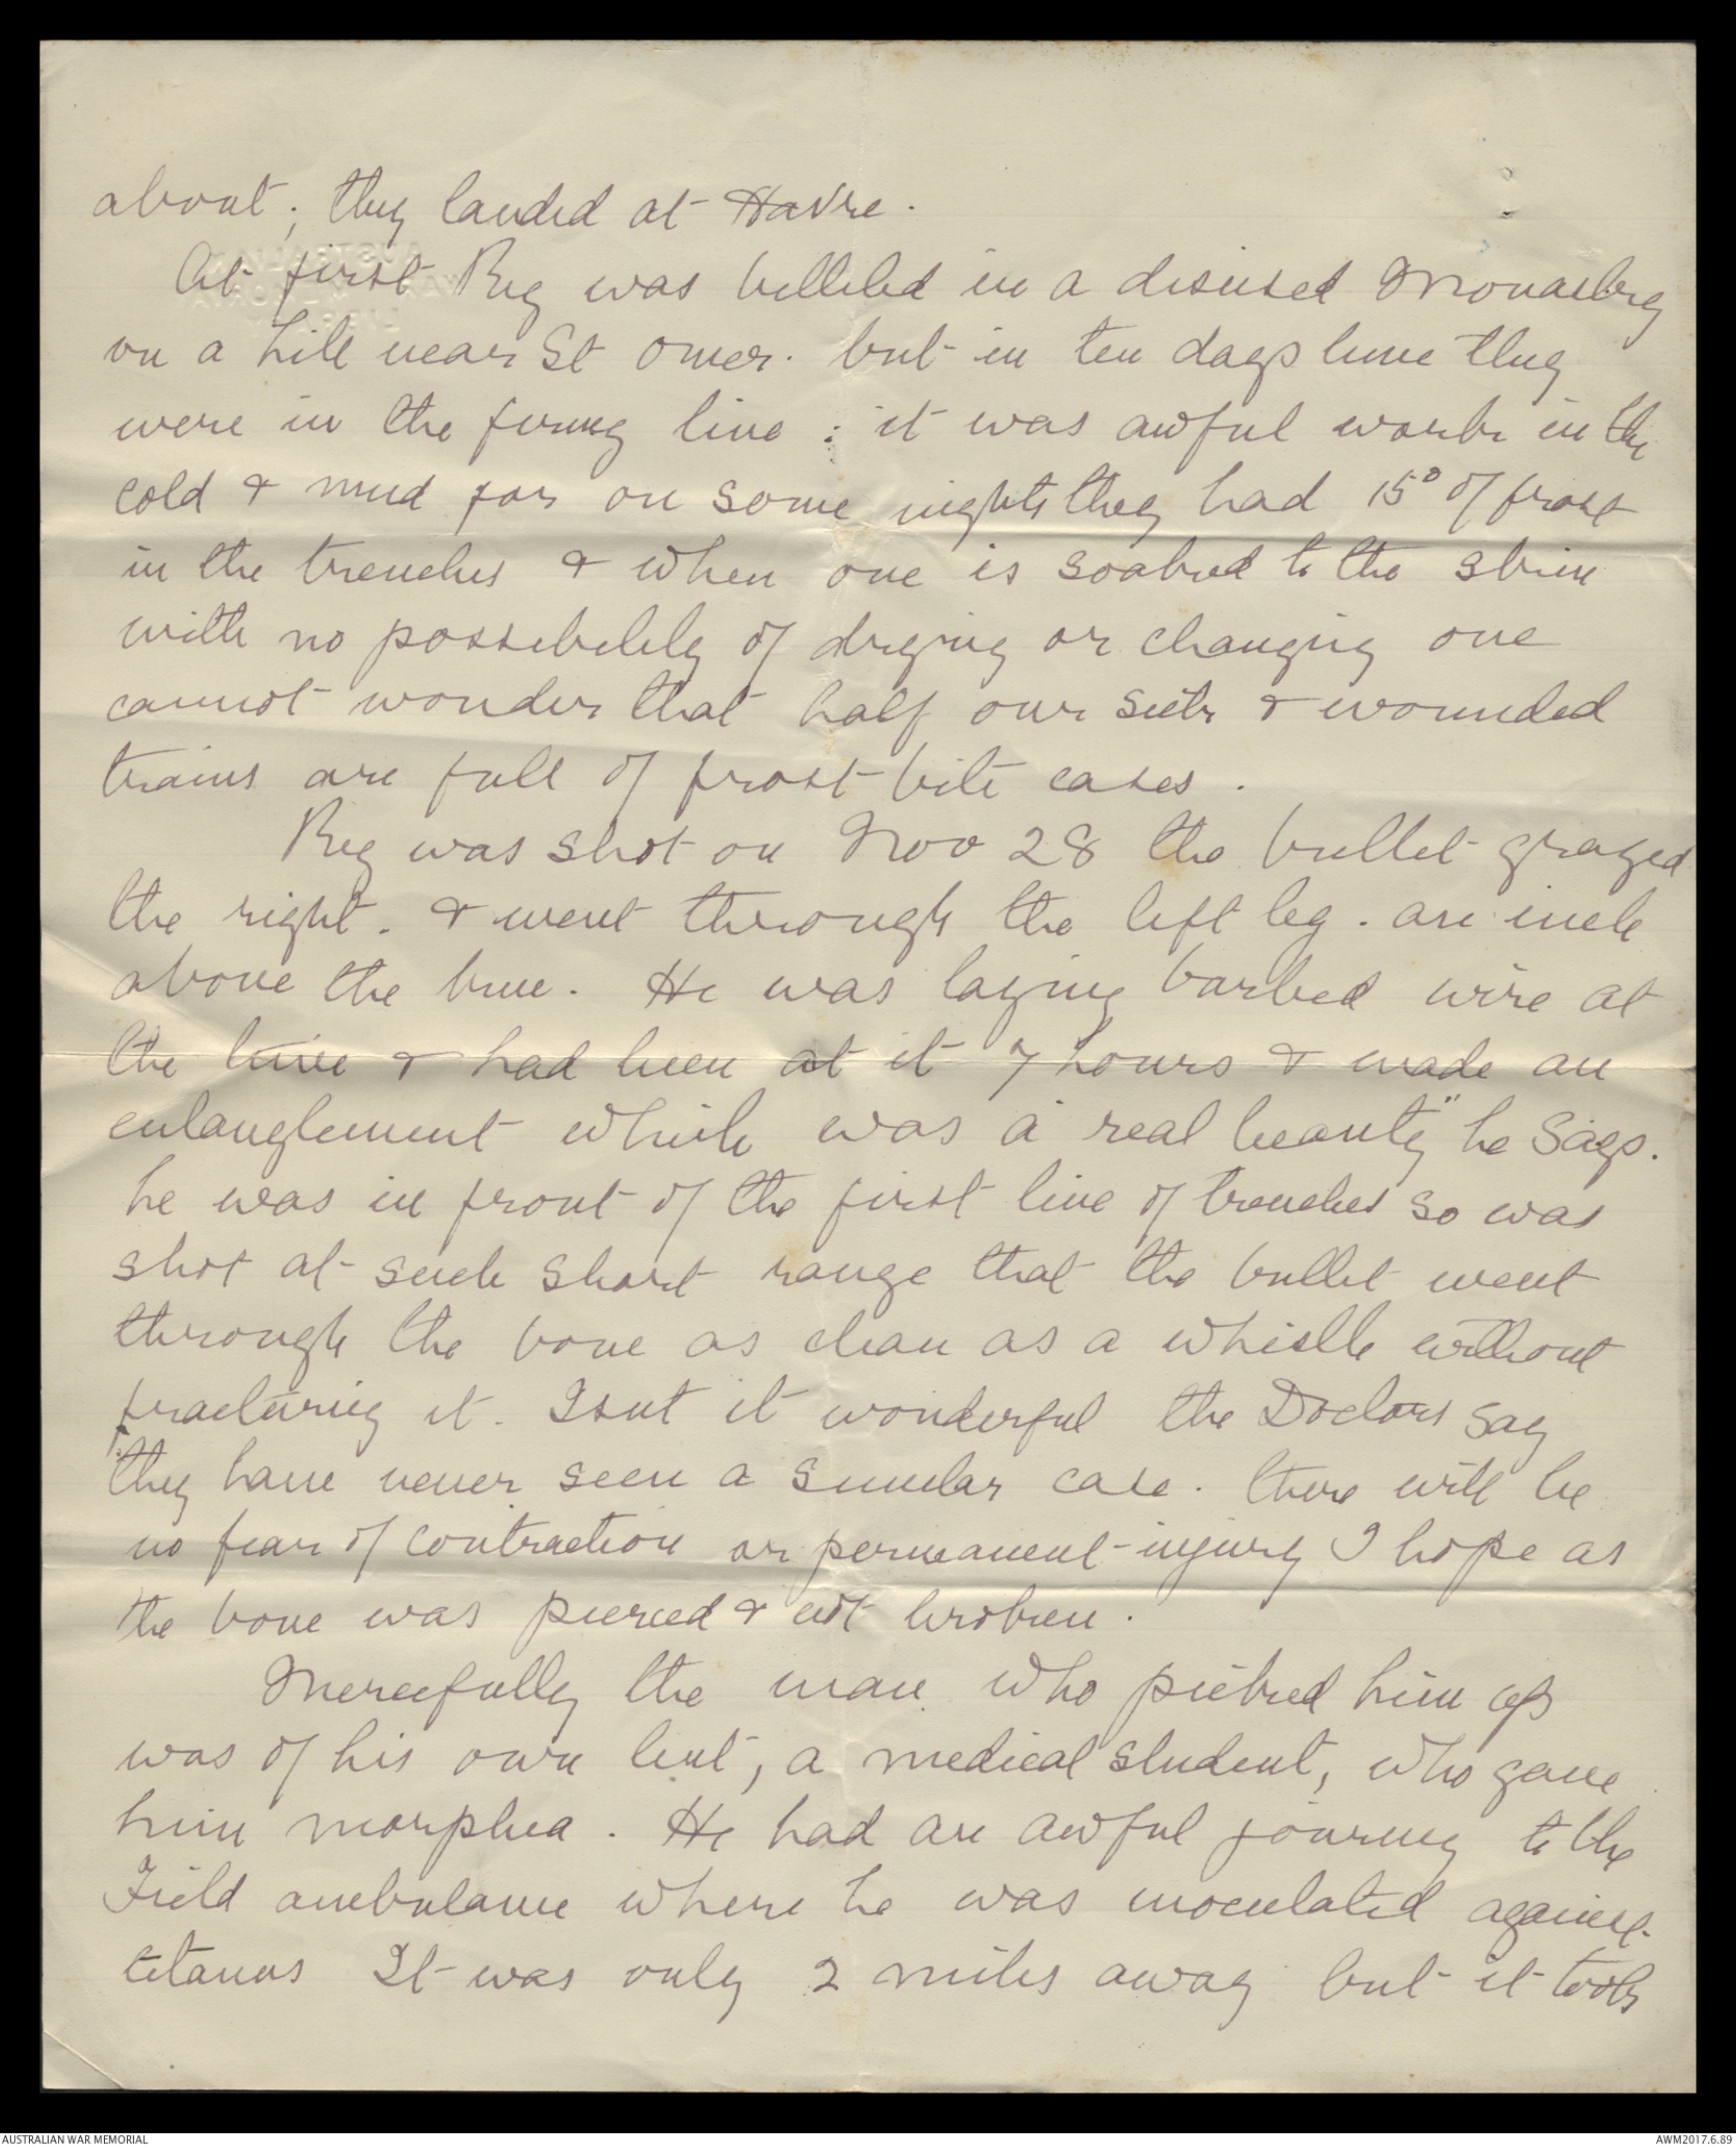 about; they landed at Havre.
At first Reg was billeted in a disused Monastery
on a hill near St Omer. but in ten days time they
were in the firing line: it was awful work in the
cold & mud for on some nights they had 15° of frost
in the trenches & when one is soaked to the skin
with no possibility of drying or changing one
cannot wonder that half our sick & wounded
trains are full of frost-bite cases.
Reg was shot on Nov 28 the bullet grazed
the right. & went through the left leg. an inch
above the knee. He was laying barbed wire at
the time & had been at it 7 hours & made an
entanglement which was a "real beauty" he says.
he was in front of the first line of trenches so was
shot at such short range that the bullet went
through the bone as clean as a whistle without
fracturing it. Isnt it wonderful the Doctors say
they have never seen a similar case. there will be
no fear of contraction or permanent injury I hope as
the bone was pierced & not broken.
Mercifully the man who picked him up
was of his own tent, a medical student, who gave
him morphia. He had an awful journey to the
Field ambulance where he was inoculated against
tetanus It was only 2 miles away but it took
AUSTRALIAN WAR MEMORIAL
AWM2017.6.89